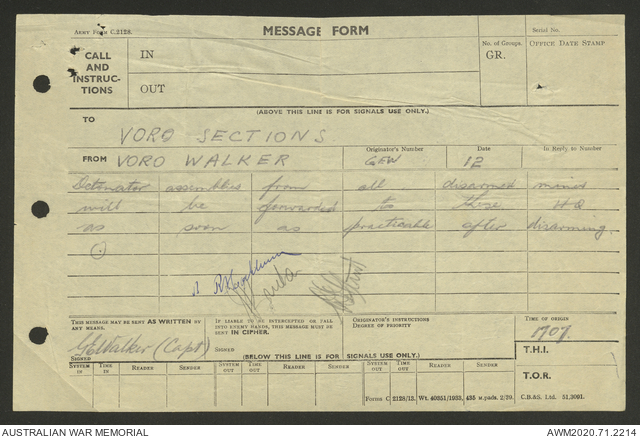 Army Form C.2128.
MESSAGE FORM
Serial No.
CALL AND INSTRUC-TIONS
IN
OUT
No. of Groups.
GR.
OFFICE DATE STAMP
(ABOVE THIS LINE IS FOR SIGNALS USE ONLY.)
TO
VORO SECTIONS
FROM VORO WALKER
Originator's Number
GEW
Date
12
In Reply to Number
Detonator assemblies from all disarmed mines
will be forwarded to these HQ
as soon as practicable after disarming.
THIS MESSAGE MAY BE SENT AS WRITTEN BY ANY MEANS.
IF LIABLE TO BE INTERCEPTED OR FALL INTO ENEMY HANDS, THIS MESSAGE MUST BE SENT IN CIPHER.
ORIGINATOR'S INSTRUCTIONS
DEGREE OF PRIORITY
TIME OF ORIGIN
1707.
SIGNED
GEWalker (Capt)
SIGNED
(BELOW THIS LINE IS FOR SIGNALS USE ONLY.)
T.H.I.
T.O.R.
SYSTEM IN
TIME IN
READER
SENDER
SYSTEM OUT
TIME OUT
READER
SENDER
SYSTEM OUT
TIME OUT
READER
SENDER
Forms C 2128/13. Wt. 40351/1933. 485 m.pads. 2/39. C.B.&S. Ltd. 51.3091.
AUSTRALIAN WAR MEMORIAL
AWM2020.71.2214